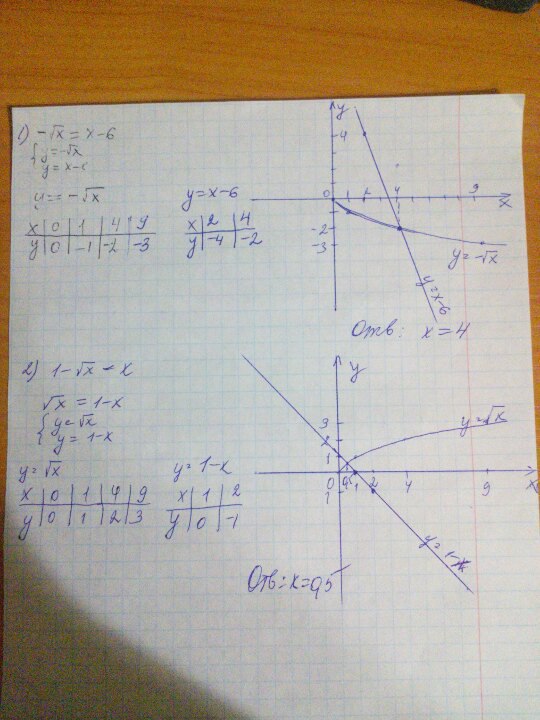 1) -√x = x-6
{ y=-√x
y = x-6
y = -√x
y=x-6
x | 0 | 1 | 4 | 9
y | 0 | -1 | -2 | -3
x | 2 | 4
y | -4 | -2
y
4
0
4
9
x
-2
-3
y=-√x
y=x-6
Отв: x=4
2) 1-√x = x
√x = 1-x
{ y=√x
y = 1-x
y=√x
y=1-x
x | 0 | 1 | 4 | 9
y | 0 | 1 | 2 | 3
x | 1 | 2
y | 0 | -1
y
3
2
1
y=√x
0
1
2
4
9
x
1
y=1-x
Отв: x=0,5